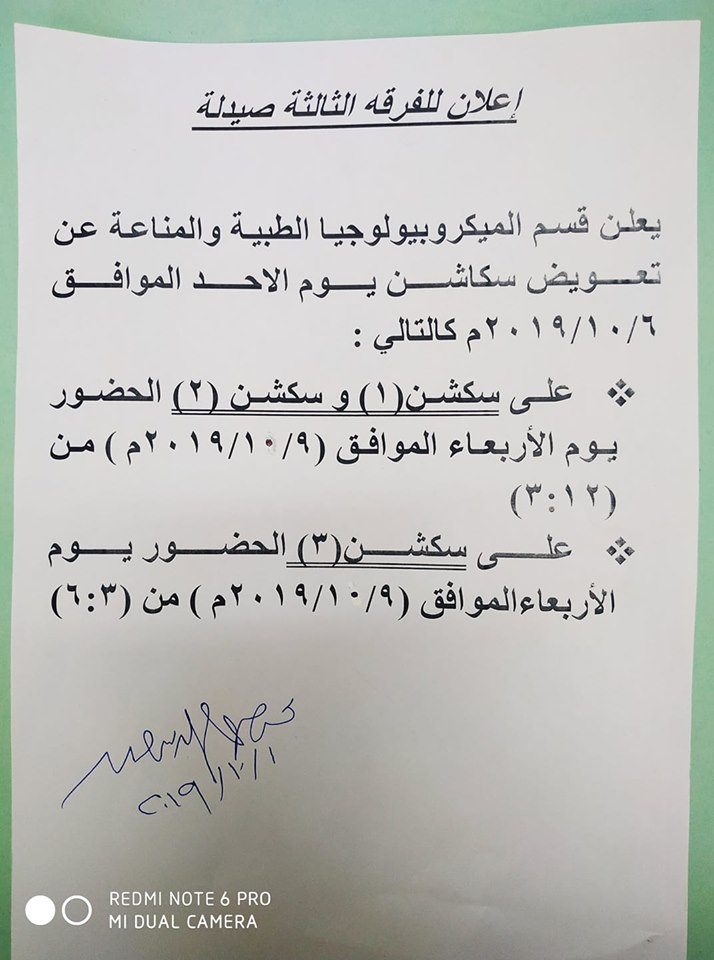 إعلان للفرقه الثالثة صيدلة
يعلن قسم الميكروبيولوجيا الطبية والمناعة عن
تعويض سكاشن يوم الاحد الموافق
٢٠١٩/١٠/٦م كالتالي :
❖ على سكشن(١) و سكشن (٢) الحضور
يوم الأربعاء الموافق (٢٠١٩/١٠/٩م ) من
(٣:١٢)
❖ على سكشن(٣) الحضور يوم
الأربعاءالموافق (٢٠١٩/١٠/٩م ) من (٦:٣)
٢٠١٩/١٠/١
REDMI NOTE 6 PRO
MI DUAL CAMERA